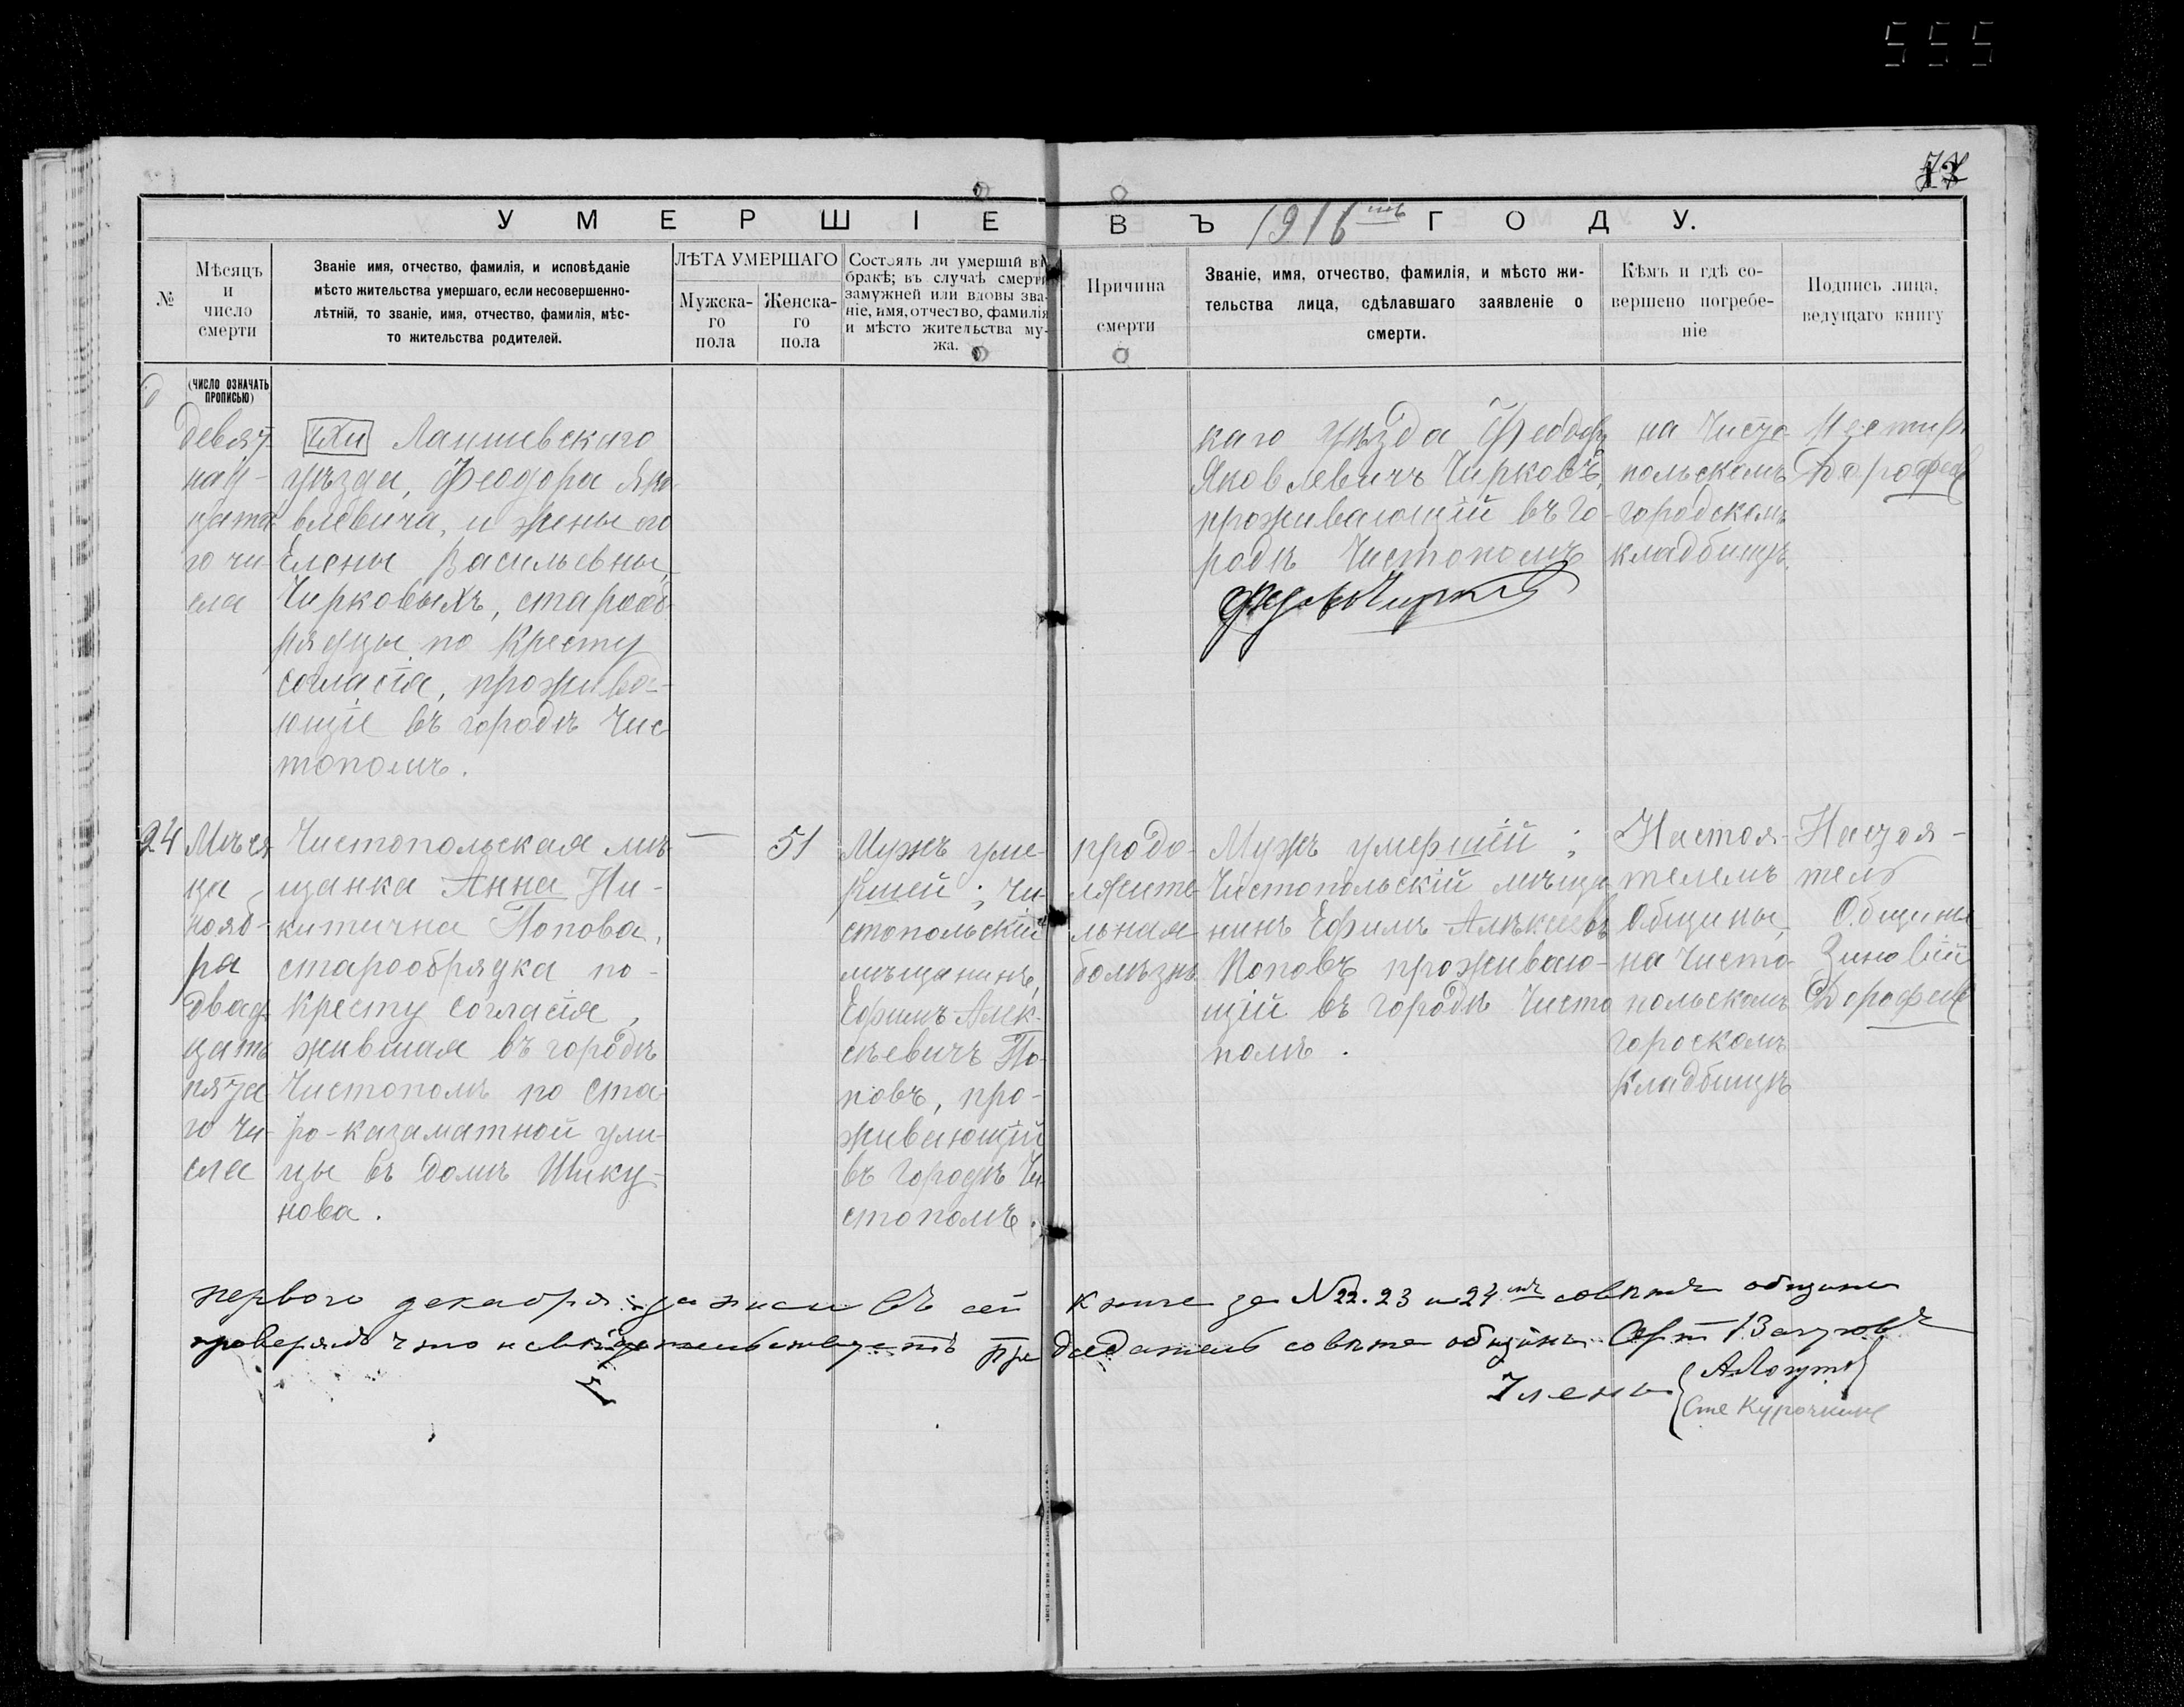 555
УМЕРШІЕ ВЪ 1916мъ ГОДУ.
№
Мѣсяцъ
и
число
смерти
Званіе имя, отчество, фамилія, и исповѣданіе
мѣсто жительства умершаго, если несовершенно-
лѣтній, то званіе, имя, отчество, фамилія, мѣс-
то жительства родителей.
ЛѢТА УМЕРШАГО
Мужска-
го
пола
Женска-
го
пола
Состоялъ ли умершій въ
бракѣ; въ случаѣ смерти
замужней или вдовы зва-
ніе, имя, отчество, фамилія
и мѣсто жительства му-
жа.
Причина
смерти
Званіе, имя, отчество, фамилія, и мѣсто жи-
тельства лица, сдѣлавшаго заявленіе о
смерти.
Кѣмъ и гдѣ со-
вершено погребе-
ніе
Подпись лица,
ведущаго книгу
(ЧИСЛО ОЗНАЧАТЬ
ПРОПИСЬЮ)
девят-
над-
цата-
го чи
сла
Лаишевскаго
уѣзда, Феодора Яко
влевича, и жены его
Елены Васильевны
Чирковыхъ, старооб-
рядцы по Кресту
согласія, прожива-
ющіе въ городѣ Чис
тополѣ.
каго уѣзда Феодоръ
Яковлевичъ Чирковъ,
проживающій въ го-
родѣ Чистополѣ
на Чисто-
польскомъ
городскомъ
кладбищѣ.
Дорофеев
24
Мѣся
ца
нояб-
ра
двад-
цать
пята
го чи-
сла
Чистопольская мѣ-
щанка Анна Ни-
китична Попова,
старообрядка по-
Кресту согласія,
жившая въ городѣ
Чистополѣ по Ста-
ро-казаматной ули-
цы въ домѣ Шику-
нова.
—
51
Мужъ уме-
ршей; Чи-
стопольскій
мѣщанинъ,
Ефимъ Алек-
сѣевичъ По
повъ, про-
живающій
въ городѣ Чи
стополѣ.
продо-
лжите-
льная
болѣзнь
Мужъ умершей;
Чистопольскій мѣща
нинъ Ефимъ Алѣксеевъ
Поповъ проживаю-
щій въ городѣ Чисто
полѣ.
Настоя-
телемъ
Общины,
на Чисто-
польскомъ
гороскомъ
Кладбищѣ
Настоя-
тель
Общины
Зиновій
Дорофеев
перваго декабря записи въ сей книге за № 22. 23 и 24мъ советъ общины
проверялъ что и свидѣтельствуетъ Председатель совета общины
Члены
Сте Курочкинъ